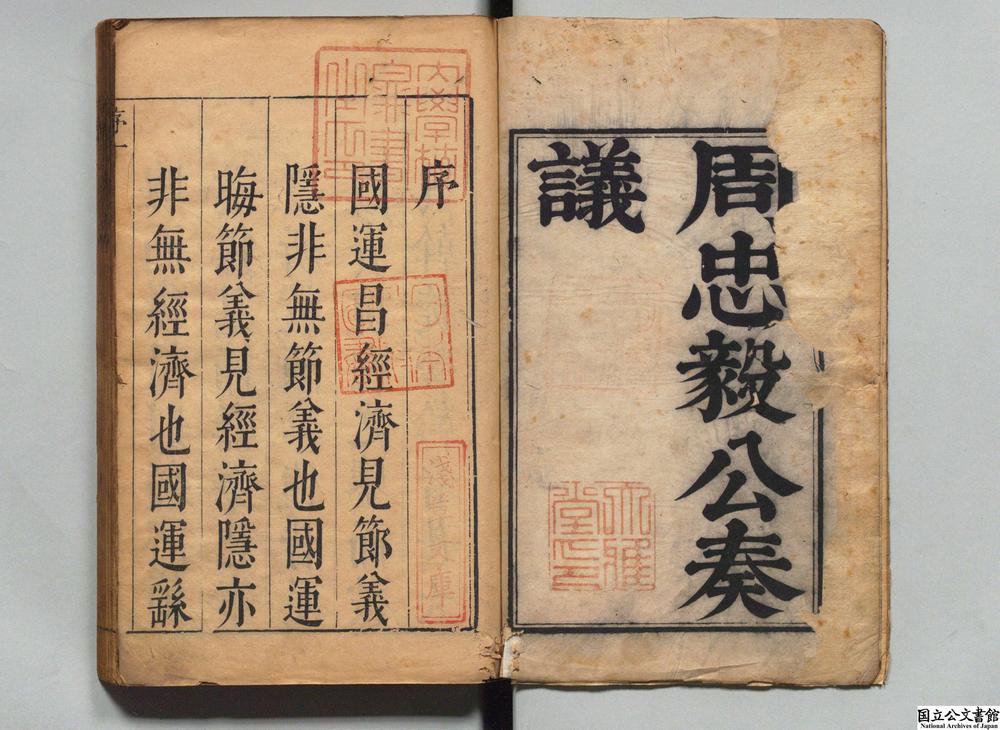 周忠毅公奏
議
序
國運昌經濟見節義
隱非無節義也國運
晦節義見經濟隱亦
非無經濟也國運繇
序一
淺草文庫
林氏
藏書
大雅
堂印
国立公文書館
National Archives of Japan